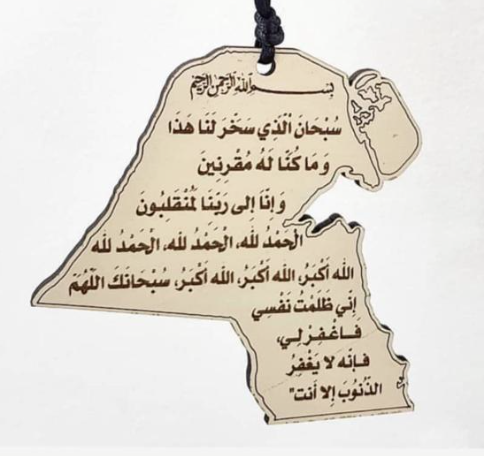 بسم الله الرحمن الرحيم
سُبْحَانَ الَّذِي سَخَّرَ لَنَا هَذَا
وَمَا كُنَّا لَهُ مُقْرِنِينَ
وَإِنَّا إِلى رَبِّنَا لَمُنْقَلِبُونَ
الْحَمْدُ لله، الْحَمْدُ لله، الْحَمْدُ لله
الله أَكْبَرُ، الله أَكْبَرُ، الله أَكْبَرُ، سُبْحَانَكَ اللَّهُمَّ
إِنِّي ظَلَمْتُ نَفْسِي
فَاغْفِرْ لِي،
فَإِنَّه لا يَغْفِرُ
الذُّنُوبَ إِلا أَنت"